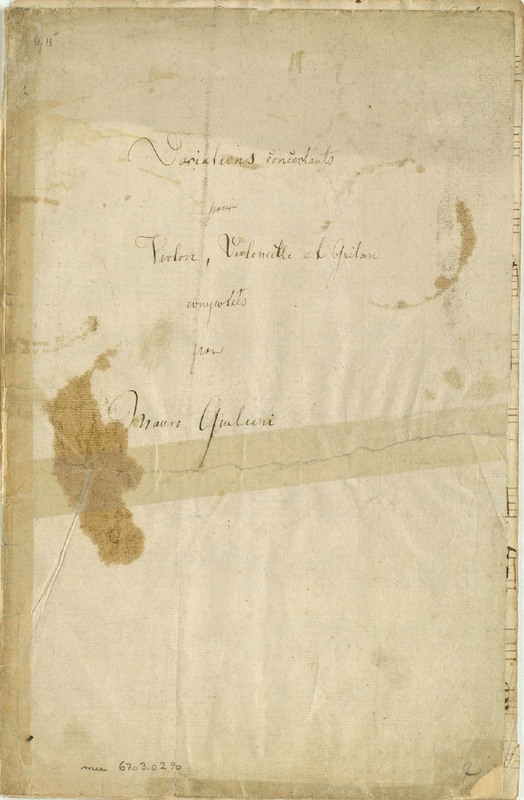 Variations concertants
pour
Violon, Violoncelle et Guitare
composées
par
Mauro Giuliani
mee 6703.0290